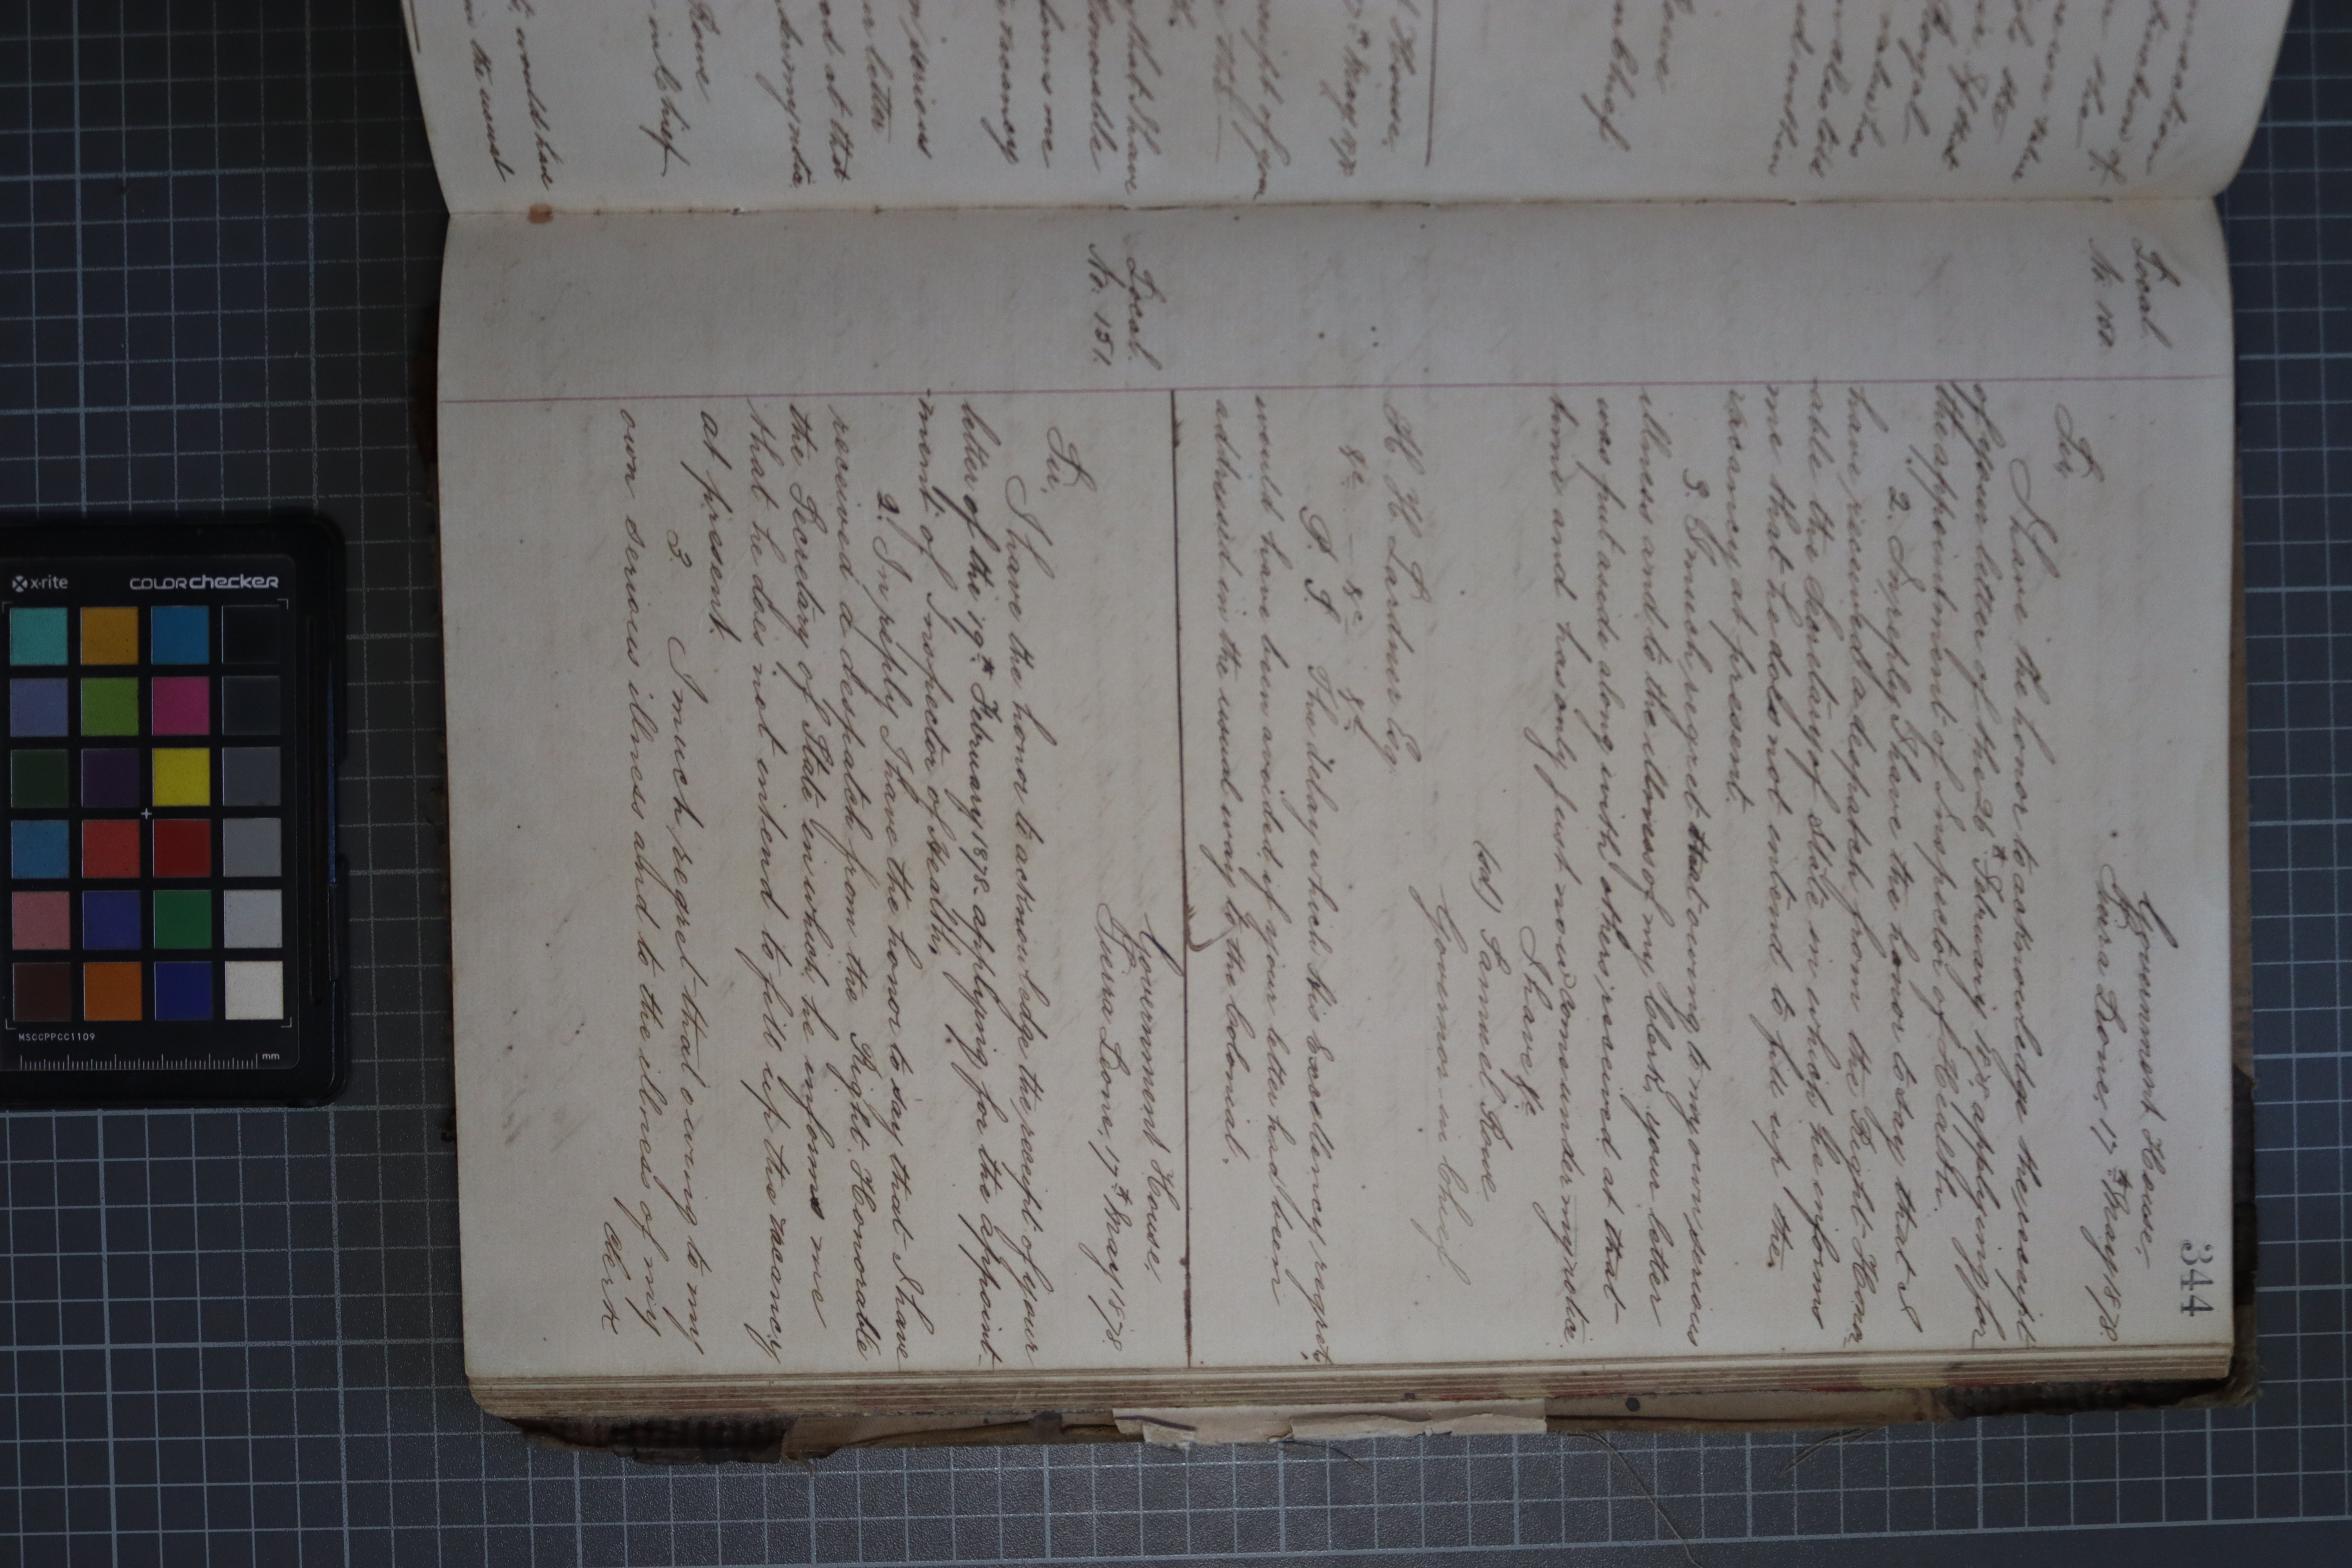 344
Local
No. 150.
Government House,
Sierra Leone, 17th May 1878.
Sir,
I have the honor to acknowledge the receipt
of your letter of the 26th February 1878 applying for
the appointment of Inspector of Health.
2. In reply I have the honor to say that I
have received a despatch from the Right Honor-
able the Secretary of State in which he informs
me that he does not intend to fill up the
vacancy at present.
3. I much regret that owing to my own serious
illness and to the illness of my Clerk, your letter
was put aside along with others received at that
time and has only just now come under my notice.
I have &c
(sd) Samuel Rowe
Governor in Chief
H. H. Lardner Esq
&c — &c — &c
P. S. The delay which his Excellency regrets,
would have been avoided if your letter had been
addressed in the usual way to the Colonial.
Local.
No. 151.
Government House,
Sierra Leone, 17th May 1878.
Sir,
I have the honor to acknowledge the receipt of your
letter of the 19th February 1878 applying for the appoint-
ment of Inspector of Health.
2. In reply I have the honor to say that I have
received a despatch from the Right Honorable
the Secretary of State in which he informs me
that he does not intend to fill up the vacancy
at present.
3. I much regret that owing to my
own serious illness and to the illness of my
Clerk
x-rite
colorchecker
MSCCPPCC1109
mm